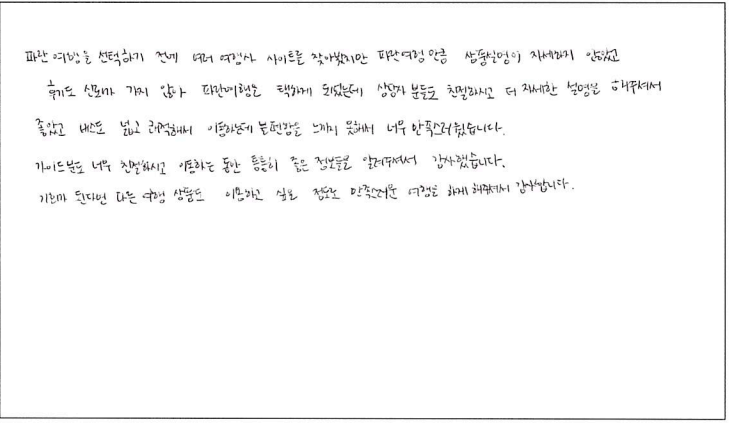 파란여행을 선택하기 전에 여러 여행사 사이트를 찾아봤지만 파란여행만큼 상품설명이 자세하지 않았고
후기도 신뢰가 가지 않아 파란여행을 택하게 되었는데 상담자 분들도 친절하시고 더 자세한 설명을 해주셔서
좋았고 버스도 넓고 쾌적해서 이동하는데 불편함을 느끼지 못해서 너무 만족스러웠습니다.
가이드분도 너무 친절하시고 이동하는 동안 틈틈히 좋은 정보들을 알려주셔서 감사했습니다.
기회가 된다면 다른 여행 상품도 이용하고 싶을 정도로 만족스러운 여행을 하게 해주셔서 감사합니다.